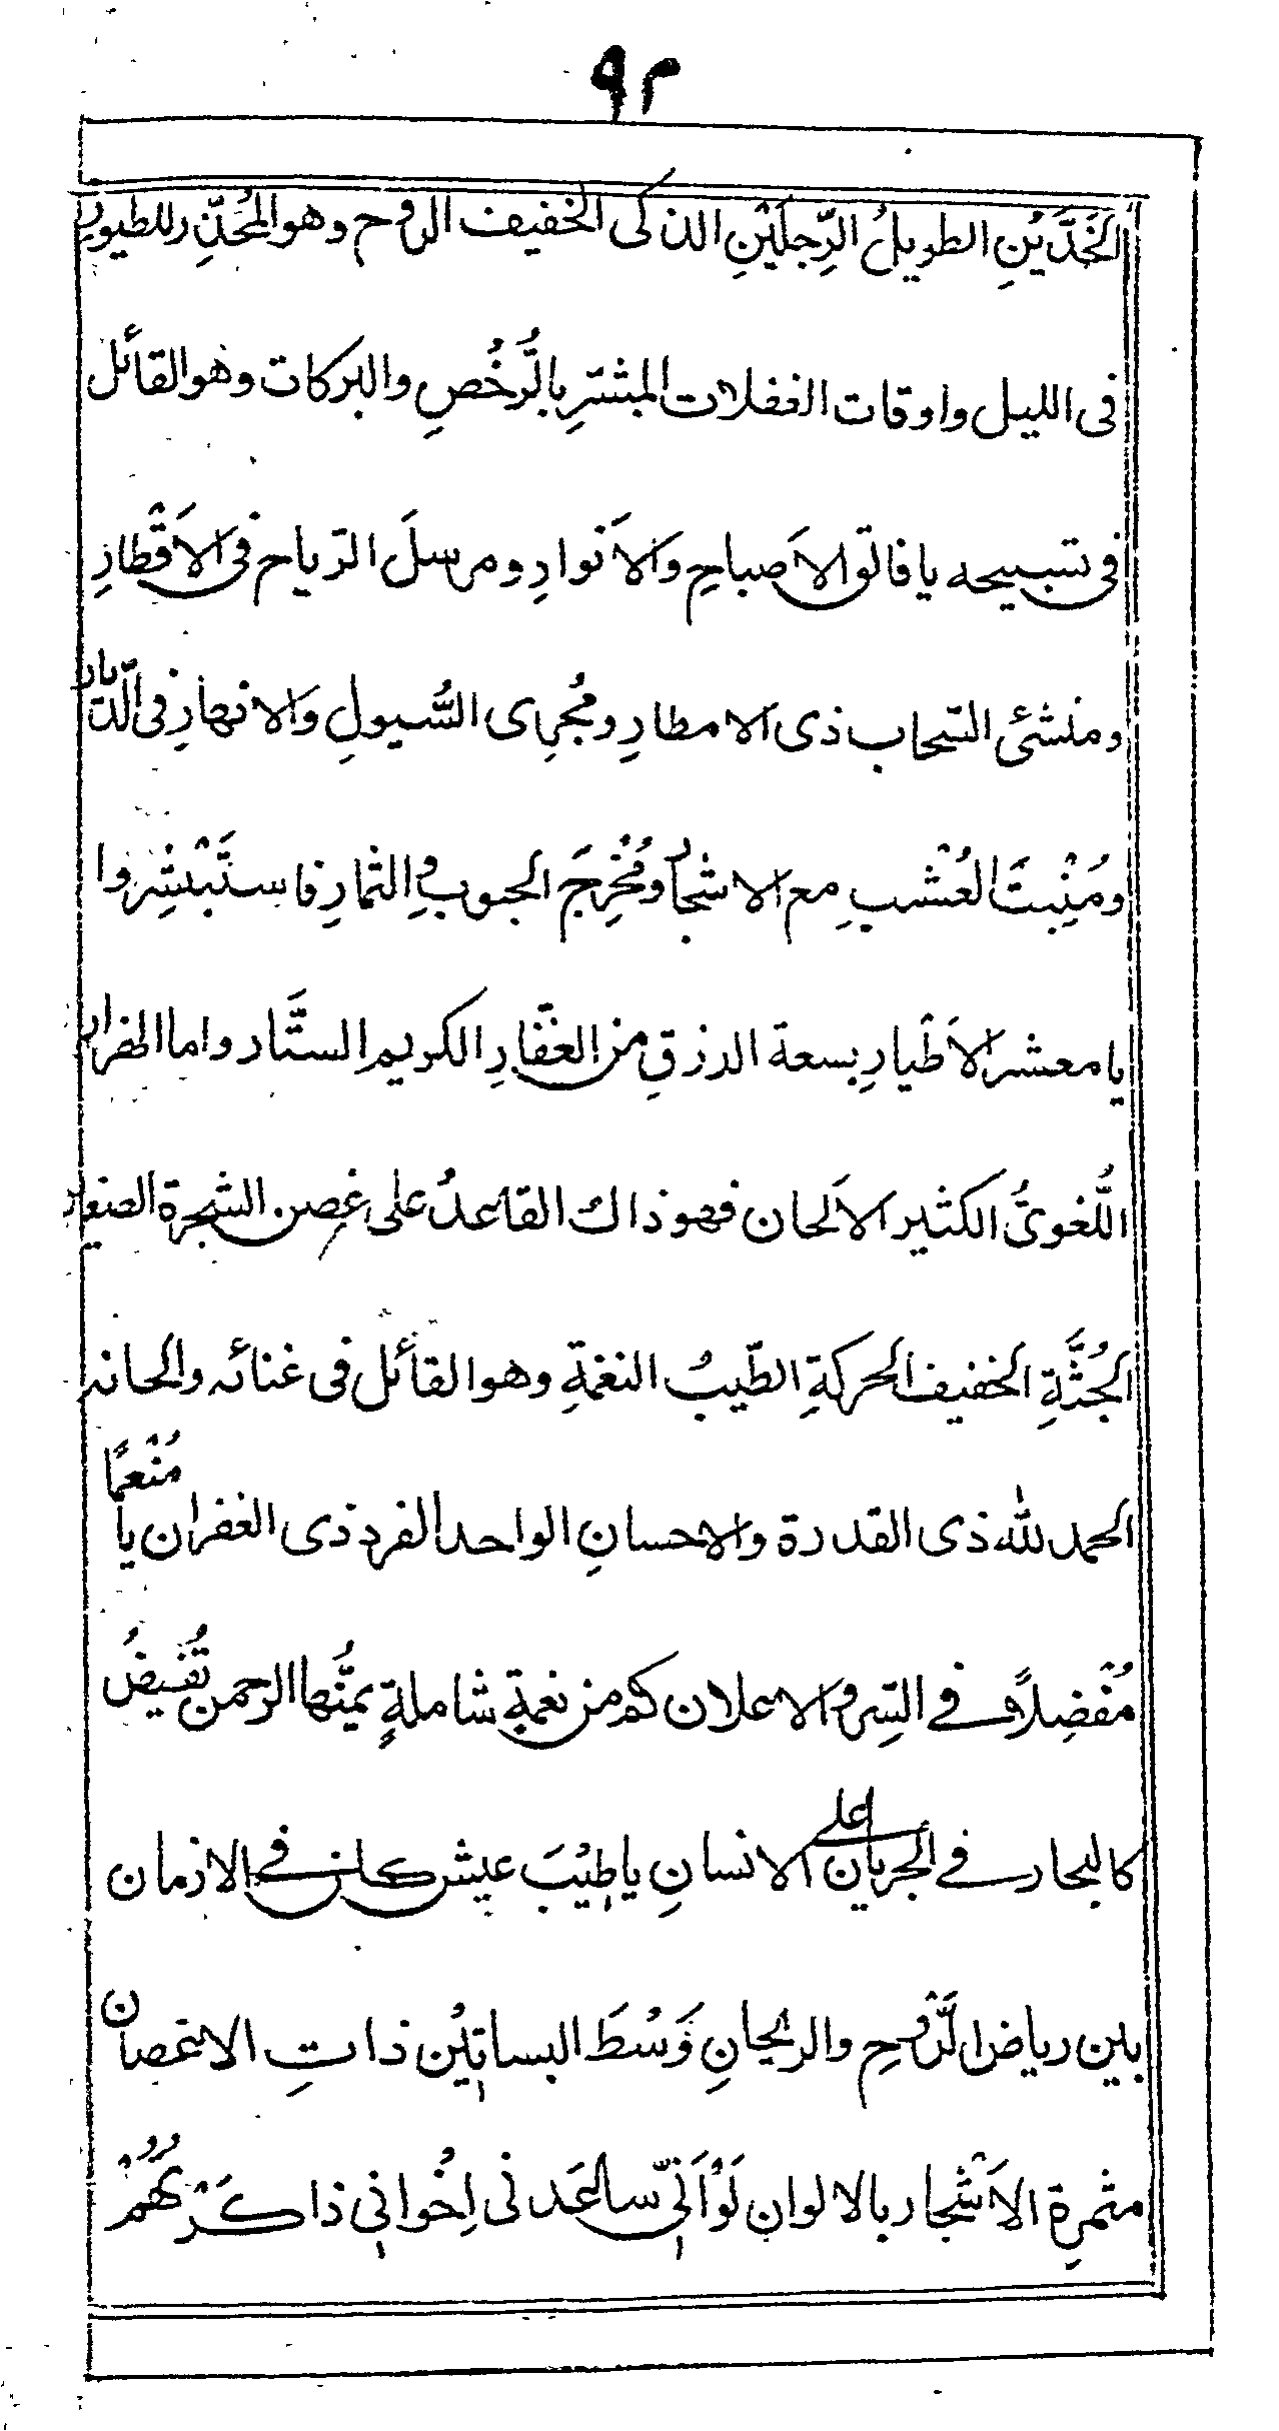 ٩٣
الخَدَّيْنِ الطويلُ الرِّجلَيْنِ الذكى الخفيف الروح وهو المُحَذِّر للطيور
فى الليل واوقات الغفلات المبشّرِ بالرُّخُصِ والبركات وهو القائل
فى تسبيحه يا فالق الاَصباحِ والاَنوارِ ومرسلَ الرّياح فى الاَقْطارِ
ومنشئى السّحاب ذى الامطارِ ومُجرِى السُّيولِ والانهارِ فى الدّيار
ومُنْبِتَ العُشْبِ مع الاشجار ومُخْرِجَ الحبوبِ والثمارِ فاستَبْشِروا
يا معشر الاَطْيارِ بسعة الرزقِ من الغَفّارِ الكريم الستَّار واما الهزار
اللُّغوىُّ الكثير الاَلحان فهو ذاك القاعدُ على غصن الشجرة الصغير
الجُثَّةِ الخفيف الحركةِ الطّيبُ النغمةِ وهو القائل فى غنائه والحانه
الحمد لله ذى القدرة والاحسانِ الواحد الفرد ذى الغفران يا مُنْعمًا
مُفْضِلاً فى السِّر والاعلان كم من نعمةٍ شاملةٍ يمنُّها الرحمن تُفيضُ
كالبحار فى الجريان على الانسانِ يا طِيْبَ عيشٍ كان فى الازمان
بين رياض الرَّوْحِ والريحانِ وَسْطَ البساتِيْن ذاتِ الاغصان
مثمرة الاَشْجار بالالوانِ لَوْ اَنِّى ساعَدنى اِخْوانِى ذاكَرْتُهُمْ